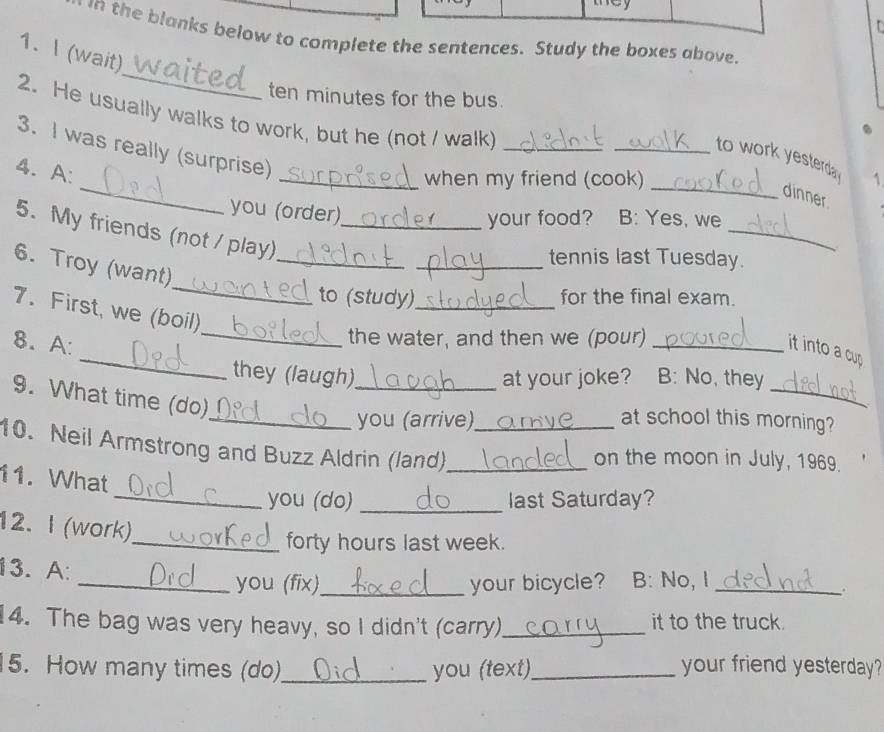 in the blanks below to complete the sentences. Study the boxes above.
1. I (wait) waited ten minutes for the bus.
2. He usually walks to work, but he (not / walk) didn't walk to work yesterday
3. I was really (surprise) surprised when my friend (cook) cooked dinner.
4. A: Did you (order) order your food? B: Yes, we ded
5. My friends (not / play) didn't play tennis last Tuesday.
6. Troy (want) wanted to (study) studyed for the final exam.
7. First, we (boil) boiled the water, and then we (pour) poured it into a cup
8. A: Ded they (laugh) laugh at your joke? B: No, they ded not
9. What time (do) Did do you (arrive) arrive at school this morning?
10. Neil Armstrong and Buzz Aldrin (land) landed on the moon in July, 1969.
11. What Did c you (do) do last Saturday?
12. I (work) worked forty hours last week.
13. A: Did you (fix) fixed your bicycle? B: No, I ded not.
14. The bag was very heavy, so I didn't (carry) carry it to the truck.
15. How many times (do) Did you (text) your friend yesterday?